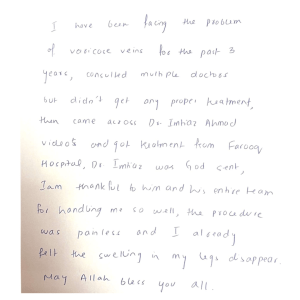 I have been facing the problem
of varicose veins for the past 3
years, consulted multiple doctors
but didn't get any proper treatment,
then came across Dr Imtiaz Ahmad
videos and got treatment from Farooq
Hospital, Dr Imtiaz was God sent,
I am thankful to him and his entire team
for handling me so well, the procedure
was painless and I already
felt the swelling in my legs disappear.
May Allah bless you all.